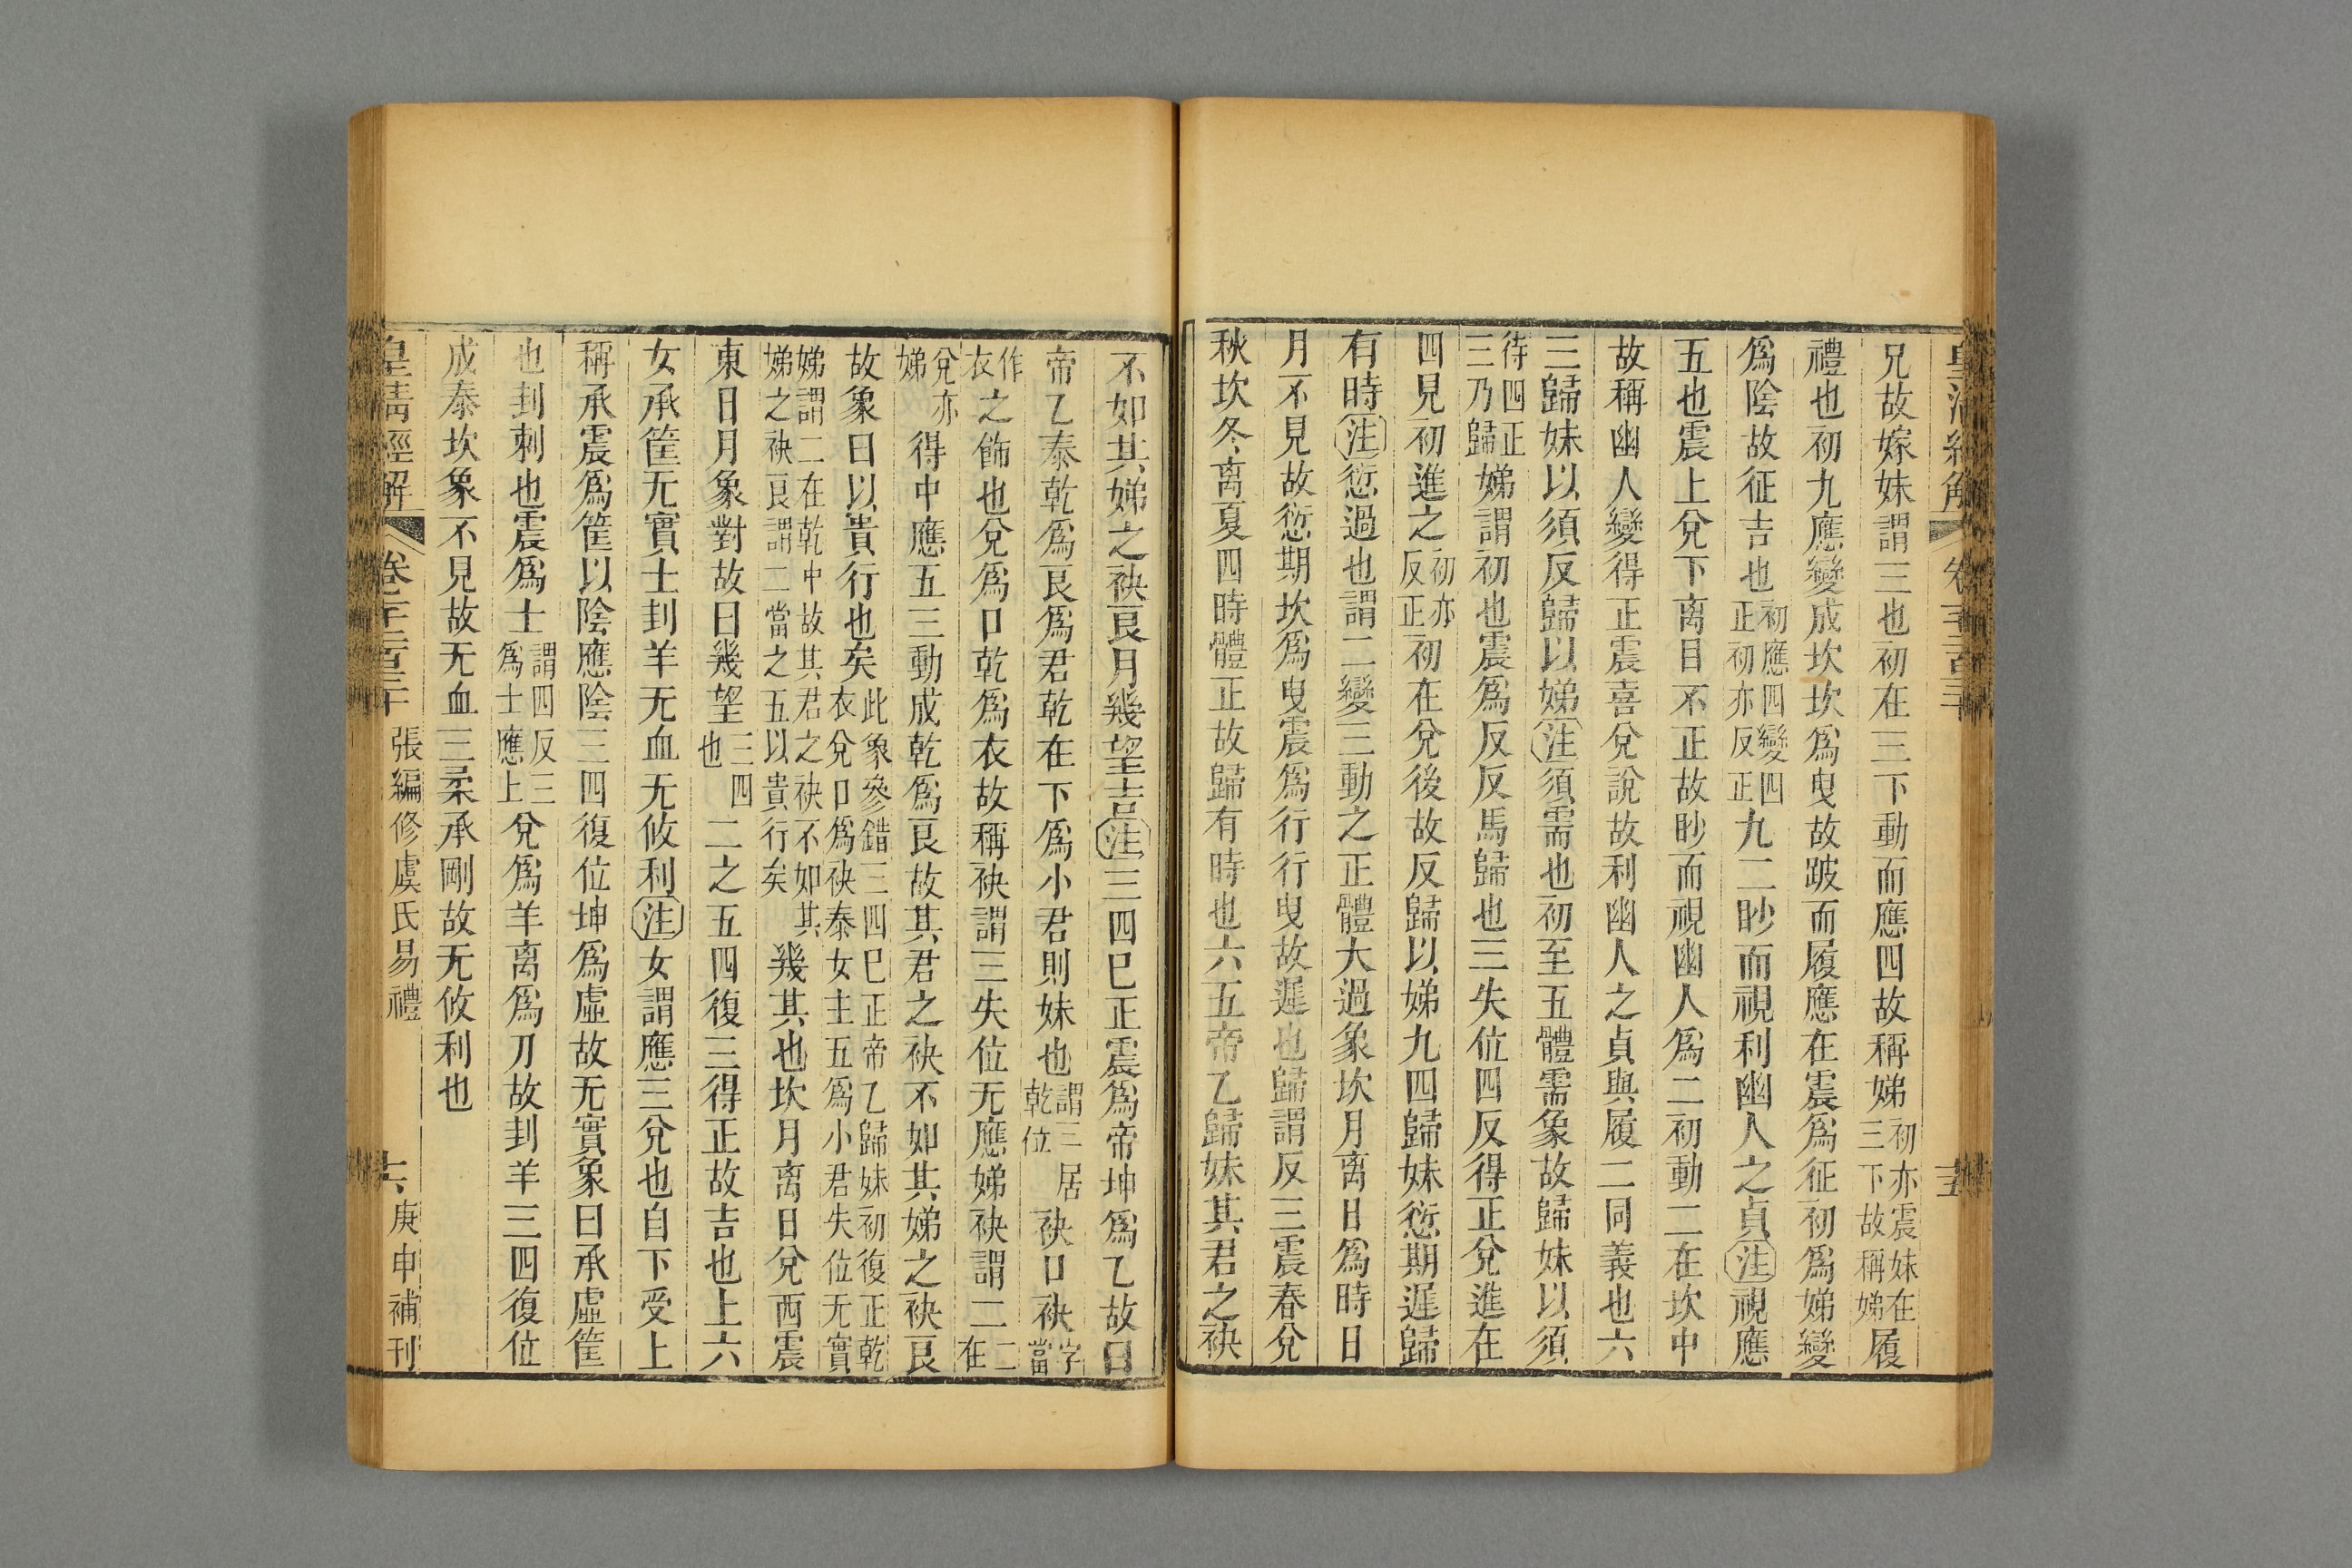 皇清經解 卷千二百二十 十五
兄故嫁妹謂三也初在三下動而應四故稱娣初亦震妹在三下故稱娣履
禮也初九應變成坎坎爲曳故跛而履應在震爲征初爲娣變
爲陰故征吉也初應四變四正初亦反正九二眇而視利幽人之貞注視應
五也震上兌下离目不正故眇而視幽人爲二初動二在坎中
故稱幽人變得正震喜兌說故利幽人之貞與履二同義也六
三歸妹以須反歸以娣注須需也初至五體需象故歸妹以須
待四正三乃歸娣謂初也震爲反反馬歸也三失位四反得正兌進在
四見初進之初亦反正初在兌後故反歸以娣九四歸妹愆期遲歸
有時注愆過也謂二變三動之正體大過象坎月离日爲時日
月不見故愆期坎爲曳震爲行行曳故遲也歸謂反三震春兌
秋坎冬离夏四時體正故歸有時也六五帝乙歸妹其君之袂
不如其娣之袂良月幾望吉注三四巳正震爲帝坤爲乙故曰
帝乙泰乾爲良爲君乾在下爲小君則妹也謂三居乾位袂口袂字當
作衣之飾也兌爲口乾爲衣故稱袂謂三失位无應娣袂謂二二在
兌亦娣得中應五三動成乾爲良故其君之袂不如其娣之袂良
故象曰以貴行也矣此象參錯三四巳正帝乙歸妹初復正乾衣兌口爲袂泰女主五爲小君失位无實
娣謂二在乾中故其君之袂不如其娣之袂良謂二當之五以貴行矣幾其也坎月离日兌西震
東日月象對故曰幾望三四也二之五四復三得正故吉也上六
女承筐无實士刲羊无血无攸利注女謂應三兌也自下受上
稱承震爲筐以陰應陰三四復位坤爲虛故无實象曰承虛筐
也刲刺也震爲士謂四反三爲士應上兌爲羊离爲刀故刲羊三四復位
成泰坎象不見故无血三柔承剛故无攸利也
皇清經解 卷千二百二十 張編修虞氏易禮 十六 庚申補刊